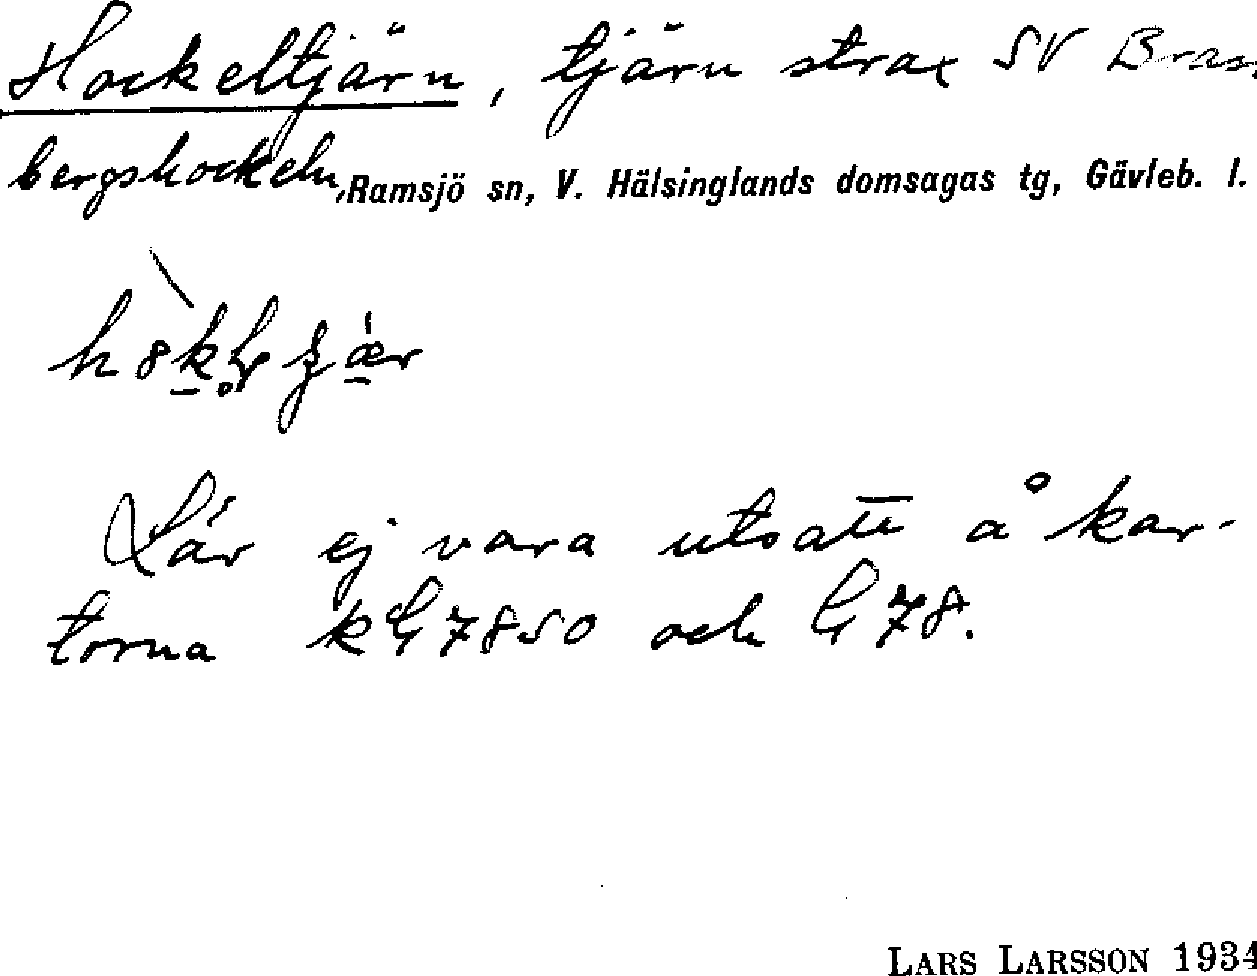 Hockeltjärn, tjärn strax SV Bran
bergshockeln, Ramsjö sn, V. Hälsinglands domsagas tg, Gävleb. l.
Lär ej vara utsatt å kar-
torna kG7850 och G 78.
LARS LARSSON 1934